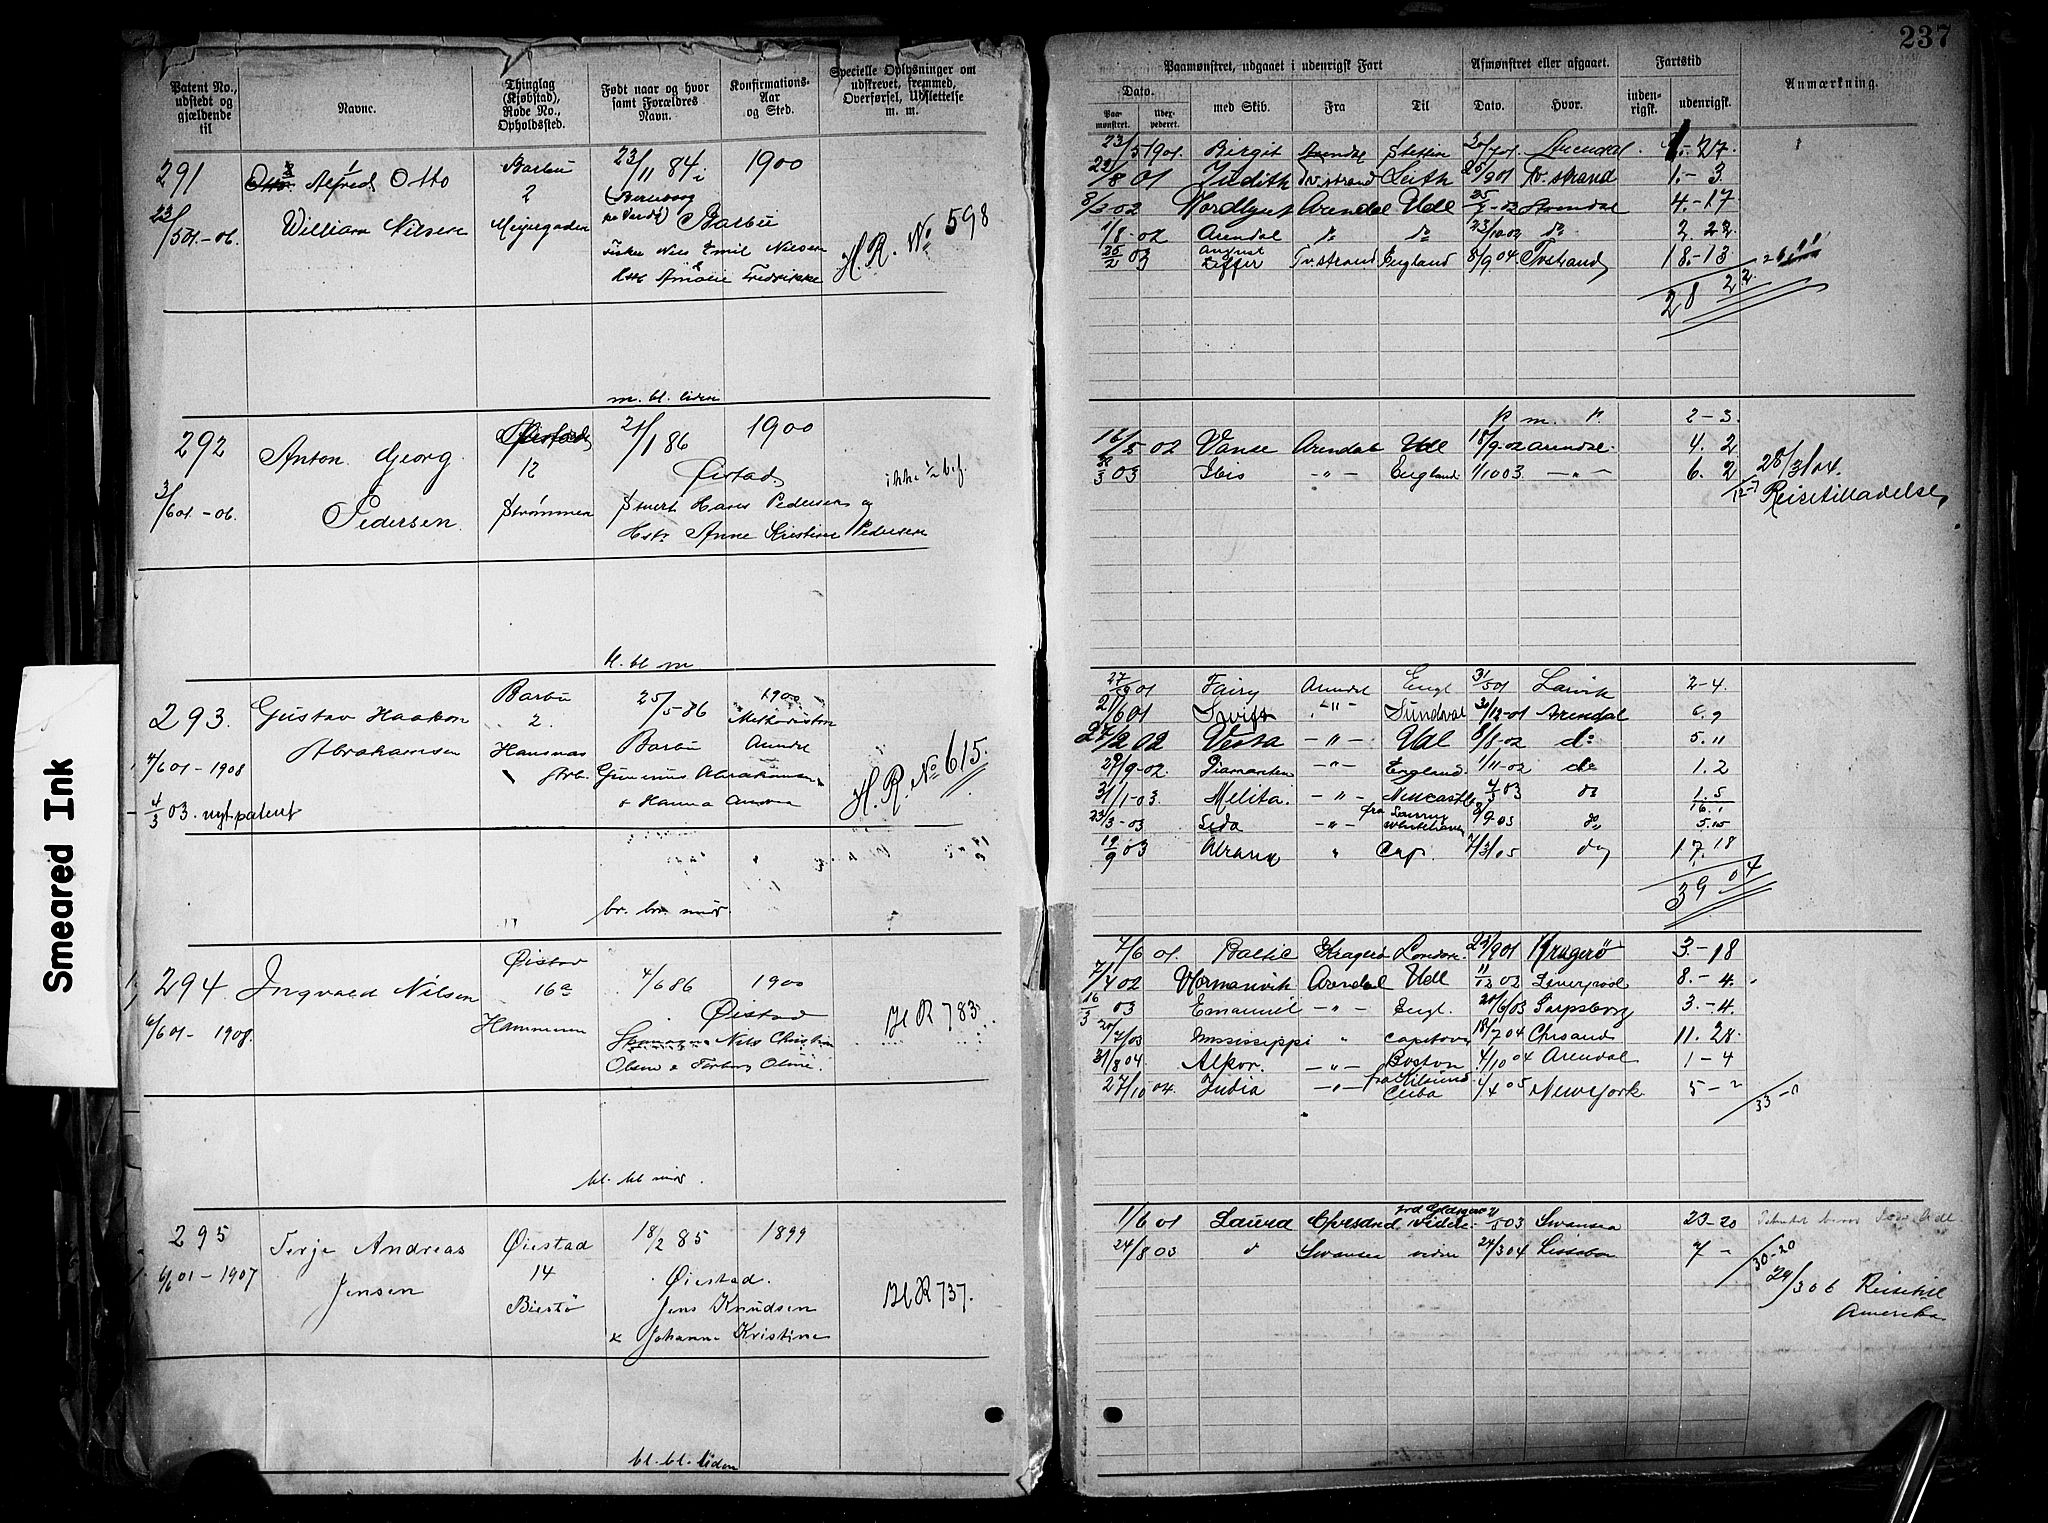 237
Patent No., udstedt og gjældende til
Navne.
Thinglag (Kjøbstad), Rode No., Opholdssted.
Født naar og hvor samt Forældres Navn.
Konfirmations-Aar og Sted.
Specielle Oplysninger om udskrevet, fremmed, Overførsel, Udslettelse m. m.
Paamønstret, udgaaet i udenrigsk Fart
Afmønstret eller afgaaet.
Fartstid
Anmærkning.
Dato.
med Skib.
Fra
Til
Dato.
Hvor.
inden-rigsk.
udenrigsk.
Paa-mønstret.
291
Alfred Otto
William Nilsen
Barbu
2
23/11 84 i
Barbu
1900
H. R. No 598
23/5 01-06.
Fisker Nils Emil Nilsen
Hst Amalie Fredrikke
23/5 1901. Birgit Arendal Stettin Arendal 1.-27
22/8 01 Judith Tv.strand Leith 25/9 01 Tv.strand 1.-3
8/3-02 Nordlyset Arendal Udl Arendal 4.-17
1/8-02 Arendal do do 23/10 02 do 2.22
03 August Leffler Tv.strand England 8/9 04 Tvstrand 18.-13
28 22
m. bl. liden
292
Anton Georg
Pedersen
3/6 01.-06.
12
Strømmen
21/1 86
Øistad
1900
ikke 1/2 bef.
Hans Pedersen og
Hstr Anne Kristine Pedersen
p. m. p. 2-3.
16/5 02 Vanse Arendal Udl 18/9-02 Arendal 4.2
03 Ibis -"- England 1/10 03 -"- 6.2
28/3 04.
Reisetilladelse
bl. bl m.
293.
Gustav Haakon
Abrahamsen
Barbu
2.
Hansnæs
25/5-86
Barbu
1900
Arendal
H. R. No 615.
4/6 01-1908
Arb. Gunnius Abrahamsen
4/3 03. nyt patent
01 Fairy Arendal Engl 31/5 01 Larvik 2-4.
21/6 01 Swift -"- Sundsval Arendal 6.9
27/2 02 Vesta -"- Udl 8/8-02 do 5.11
29/9-02. Diamanten -"- England 1/11-02 do 1.2
31/1-03. Melita. -"- Newcastle 03 do 1.5
16.1
23/3-03 Leda -"- 5.15
19/9 03 Cap. 7/3 05 17.18
39 04
br. br. mid.
294
Ingvald Nilsen
Øistad
16a
Hammeren
4/6 86
Øistad
1900
Hl R 783
6/6 01-1908.
Nils Christian
Olsen
7/6 01. Baltic Kragerö London 23/9 01 Kragerö 3.-18
7/4 02 Normanvik Arendal Udl 11/12 02 Liverpool 8.-4.
16/3 03 Emanuel -"- Engl. 20/6 03 Sarpsborg 3.-4.
20/7 03 Mississippi " Capetown 18/7 04 Chrsand 11.28.
31/8 04. Alkor. -"- Boston 4/10 04 Arendal 1-4
27/10 04. India -"- Cuba 1/4 05 Newyork.
bl. bl mid.
295
Terje Andreas
Jensen
Øiestad
14
Biestø
18/2 85
Øiestad.
1899
Hl R 737.
6/6 01-1907
Jens Knudsen
x Johanne Kristine
1/6 01 Laura Chrsand 03 Swansea 23-20
24/8 03 Swansea 24/3 04 Lissabon 7-
30-20
24/3 06 Reisetil
Amerika
bl. bl. liden
Smeared Ink